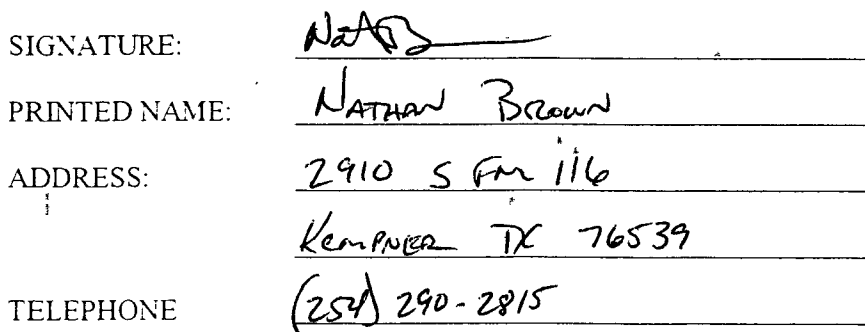 SIGNATURE: NatB
PRINTED NAME: NATHAN BROWN
ADDRESS: 2910 S FM 116
KEMPNER TX 76539
TELEPHONE (254) 290-2815